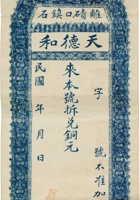 石鎮口磧離
和德天
字
號不准加
來本號拆兌銅元
民國　年　月　日